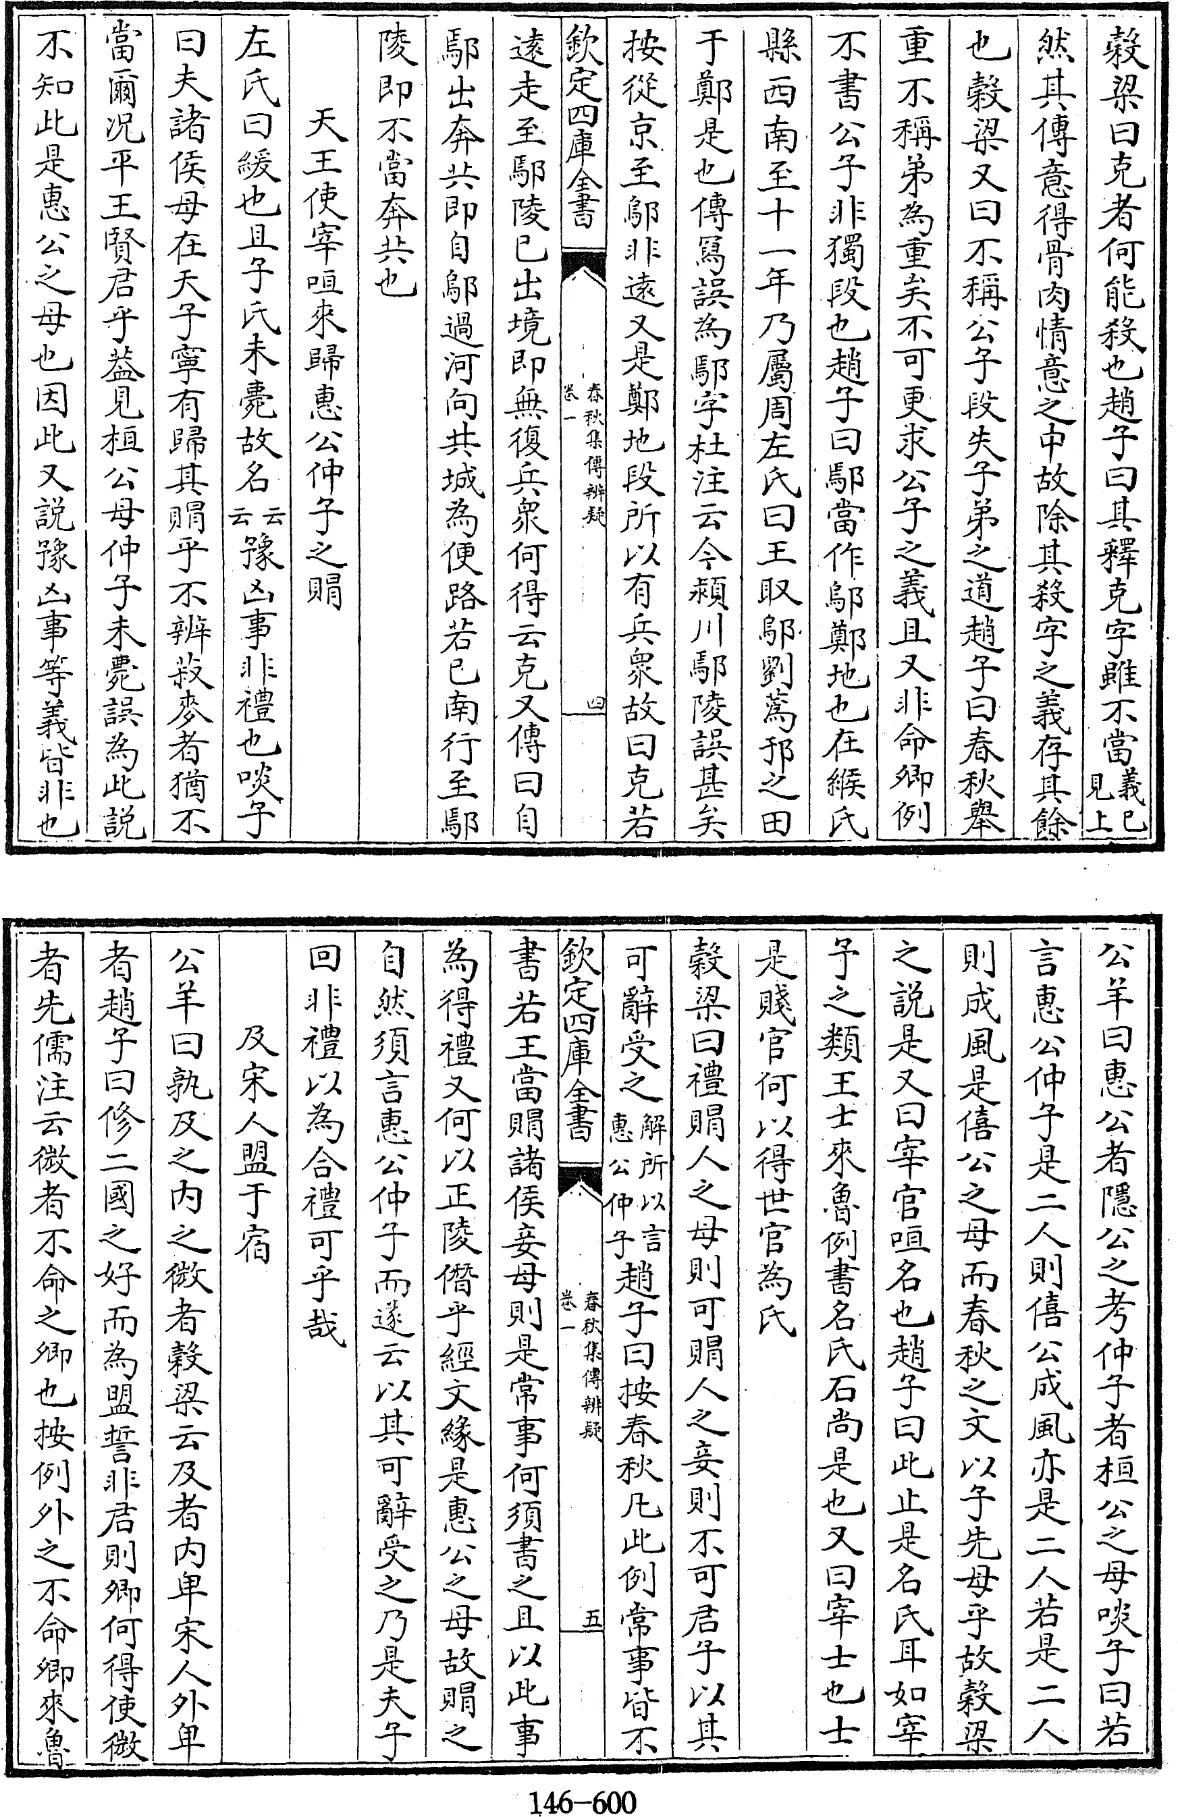 穀梁曰克者何能殺也趙子曰其釋克字雖不當義已見上
然其傳意得骨肉情意之中故除其殺字之義存其餘
也穀梁又曰不稱公子段失子弟之道趙子曰春秋舉
重不稱弟為重矣不可更求公子之義且又非命卿例
不書公子非獨段也趙子曰鄢當作鄔鄭地也在緱氏
縣西南至十一年乃屬周左氏曰王取鄔劉蒍邘之田
于鄭是也傳寫誤為鄢字杜注云今潁川鄢陵誤甚矣
按從京至鄔非遠又是鄭地段所以有兵衆故曰克若
欽定四庫全書
春秋集傳辨疑
卷一
四
遠走至鄢陵已出境即無復兵衆何得云克又傳曰自
鄢出奔共即自鄔過河向共城為便路若已南行至鄢
陵即不當奔共也
天王使宰咺來歸惠公仲子之賵
左氏曰緩也且子氏未薨故名云云豫凶事非禮也啖子
曰夫諸侯母在天子寧有歸其賵乎不辨菽麥者猶不
當爾况平王賢君乎葢見桓公母仲子未薨誤為此説
不知此是惠公之母也因此又説豫凶事等義皆非也
公羊曰惠公者隱公之考仲子者桓公之母啖子曰若
言惠公仲子是二人則僖公成風亦是二人若是二人
則成風是僖公之母而春秋之文以子先母乎故穀梁
之説是又曰宰官咺名也趙子曰此止是名氏耳如宰
予之類王士來魯例書名氏石尚是也又曰宰士也士
是賤官何以得世官為氏
穀梁曰禮賵人之母則可賵人之妾則不可君子以其
可辭受之解所以言惠公仲子趙子曰按春秋凡此例常事皆不
欽定四庫全書
春秋集傳辨疑
卷一
五
書若王當賵諸侯妾母則是常事何須書之且以此事
為得禮又何以正陵僭乎經文緣是惠公之母故賵之
自然須言惠公仲子而遂云以其可辭受之乃是夫子
回非禮以為合禮可乎哉
及宋人盟于宿
公羊曰孰及之内之微者穀梁云及者内卑宋人外卑
者趙子曰修二國之好而為盟誓非君則卿何得使微
者先儒注云微者不命之卿也按例外之不命卿來魯
146-600